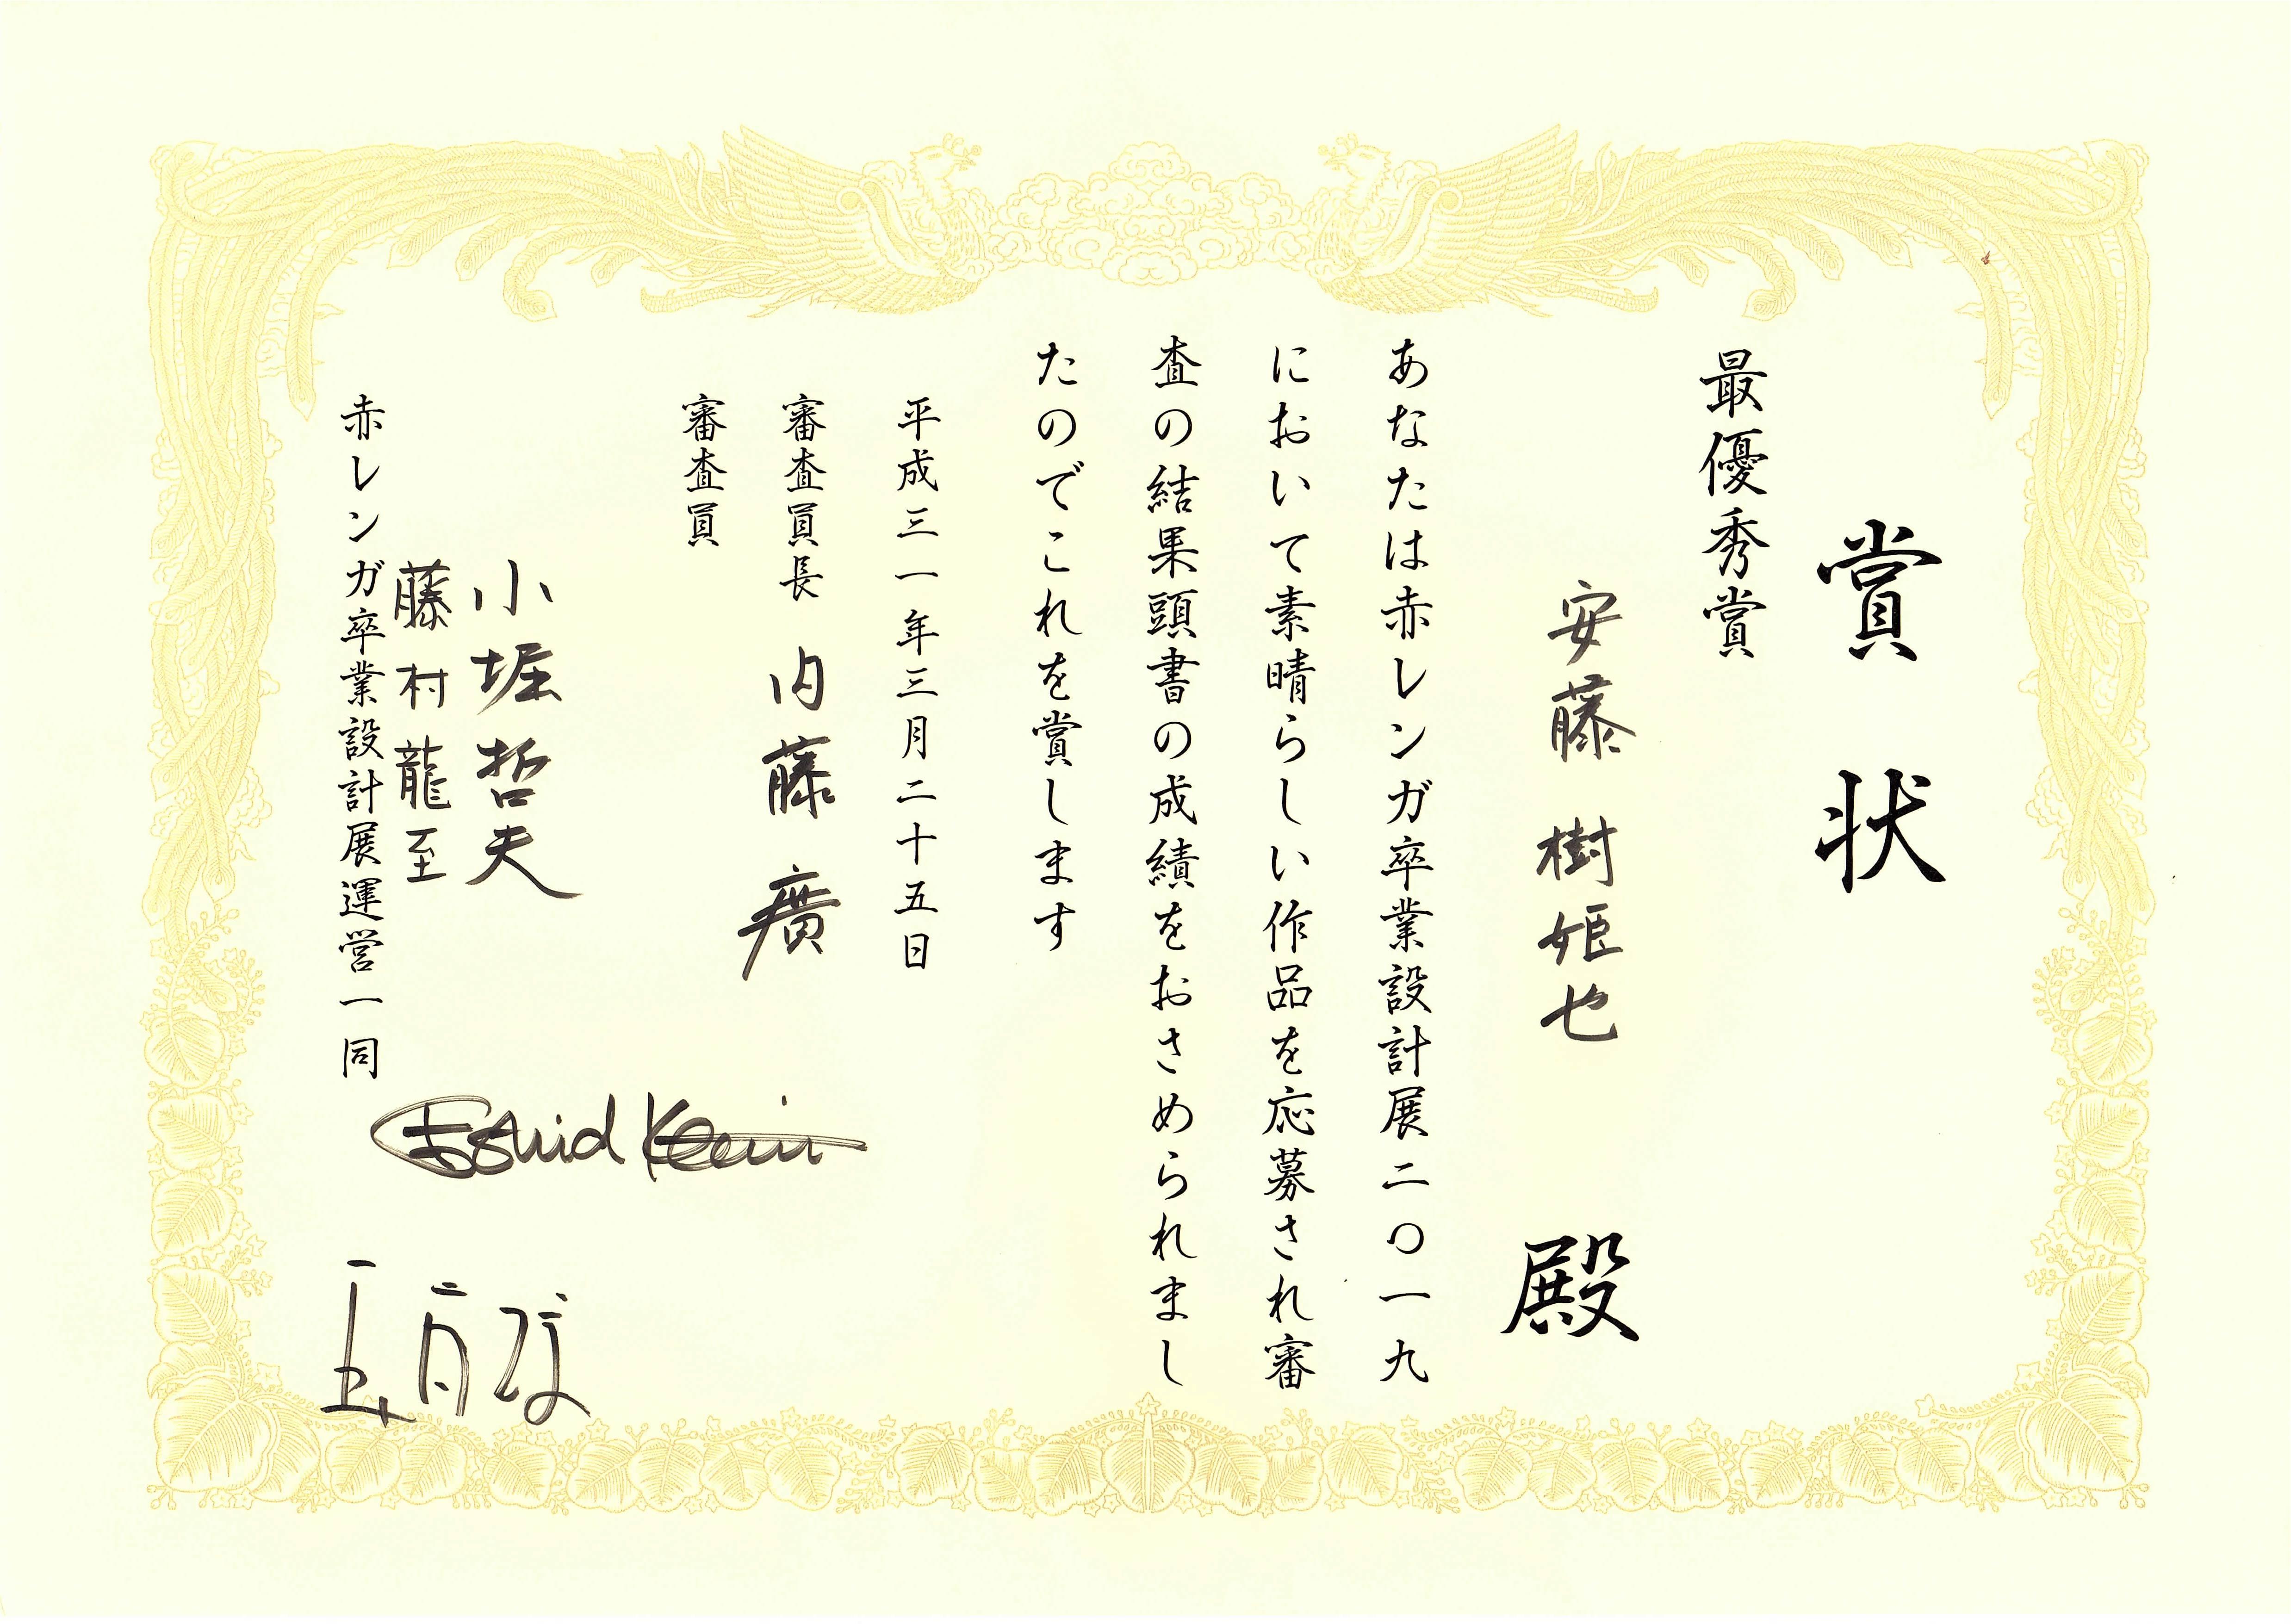 賞状
最優秀賞
安藤 樹姫也 殿
あなたは赤レンガ卒業設計展二〇一九
において素晴らしい作品を応募され審
査の結果頭書の成績をおさめられまし
たのでこれを賞します
平成三一年三月二十五日
審査員長 内藤 廣
審査員
小堀哲夫
藤村龍至
赤レンガ卒業設計展運営一同